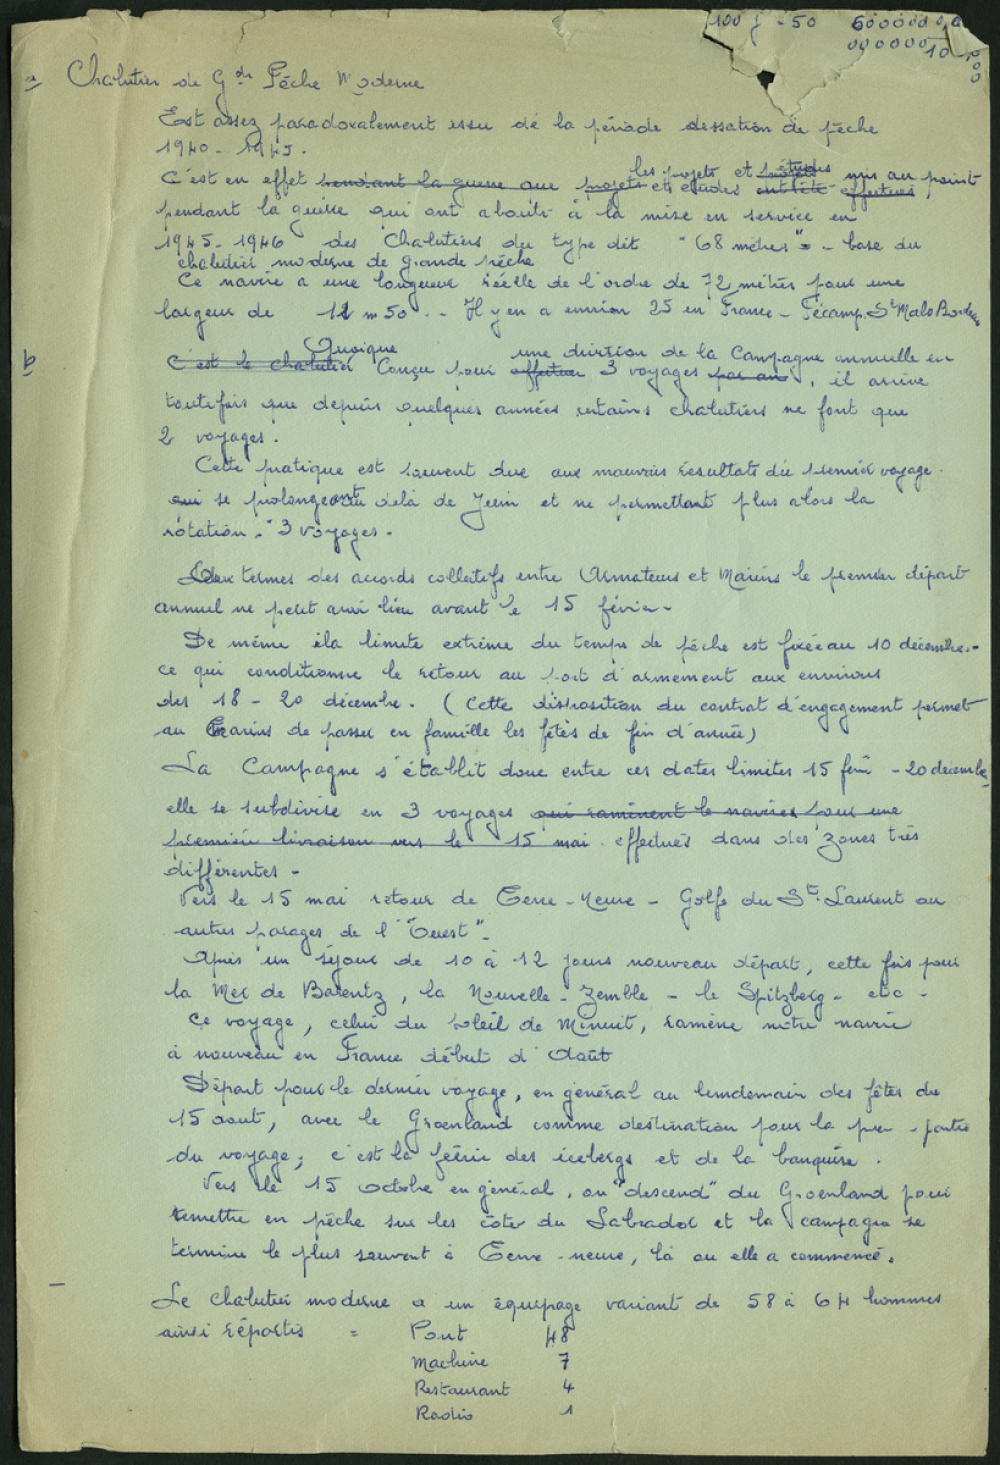 100 f - 50 600000 0,0
000000 10
000
a Chalutier de Gde Pêche Moderne
Est assez paradoxalement issu de la période dessation de pêche
1940 - 1945.
les projets et études mis au point
C'est en effet pendant la guerre que projets et etudes ont été effectués,
pendant la guerre qui ont abouti à la mise en service en
1945-1946 des Chalutiers du type dit "68 mètres" - base du
chalutier moderne de grande pêche
Ce navire a une longueur réelle de l'ordre de 72 mètres pour une
largeur de 12 m 50. - Il y en a environ 25 en France - Fécamp. St Malo Bordeaux
Quoique une division de la Campagne annuelle en
b C'est le chalutier Conçu pour effectuer 3 voyages par an, il arrive
toutefois que depuis quelques années certains chalutiers ne font que
2 voyages.
Cette pratique est souvent due aux mauvais résultats du premier voyage.
qui se prolongeant au delà de Juin et ne permettant plus alors la
rotation "3 voyages.
Aux termes des accords collectifs entre Armateurs et Marins le premier départ
annuel ne peut avoir lieu avant le 15 février -
De même la limite extrême du temps de pêche est fixée au 10 décembre. -
ce qui conditionne le retour au port d'armement aux environs
des 18 - 20 décembre. (Cette disposition du contrat d'engagement permet
au Marins de passer en famille les fêtes de fin d'année)
La Campagne s'établit donc entre ces dates limites 15 fév - 20 décembre
elle se subdivise en 3 voyages qui ramènent le navires pour une
première livraison vers le 15 mai. effectués dans des zones très
différentes -
Vers le 15 mai retour de Terre-Neuve - Golfe du St. Laurent ou
autres parages de l'"Ouest".
Après un séjour de 10 à 12 jours nouveau départ, cette fois pour
la Mer de Barentz, la Nouvelle-Zemble - le Spitzberg - etc -
Ce voyage, celui du soleil de Minuit, ramène notre navire
à nouveau en France début d'Août
Départ pour le dernier voyage, en général au lendemain des fêtes du
15 aout, avec le Groenland comme destination pour la pre - partie
du voyage; c'est la féérie des icebergs et de la banquise.
Vers le 15 octobre en général, on "descend" du Groenland pour
remettre en pêche sur les côtes du Labrador et la campagne se
termine le plus souvent à Terre-neuve, là ou elle a commencé.
Le chalutier moderne a un équipage variant de 58 à 64 hommes
ainsi répartis = Pont 48
Machine 7
Restaurant 4
Radio 1